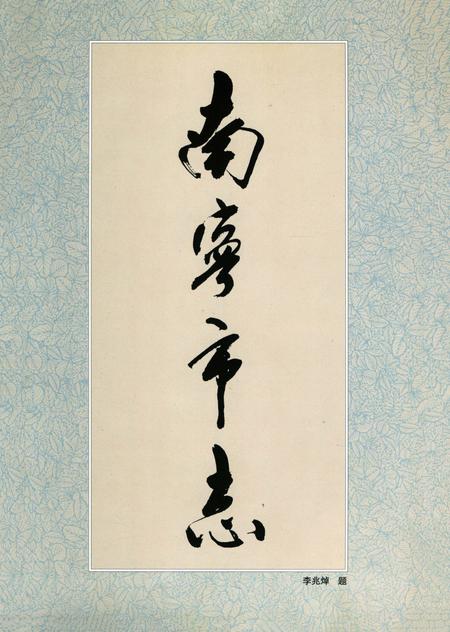 南寧市志
李兆焯 题